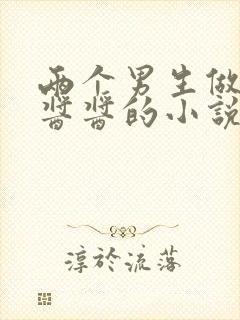 两个男生做
酱酱的小説
淳於流落